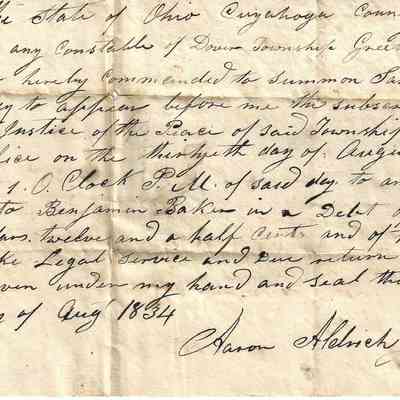 State of Ohio Cuyahoga Coun
any Constable of Dover Township Gree
hereby Commended to Summon Sa
to appear before me the subscr
Justice of the Peace of said Township
ice on the thirtyeth day of Augu
1. O. Clock P. M. of said day to an
to Benjamin Baker in a Debt o
ars. twelve and a half Cents and of
ke Legal Service and Due return
ven under my hand and seal th
of Aug 1834
Aaron Aldrich